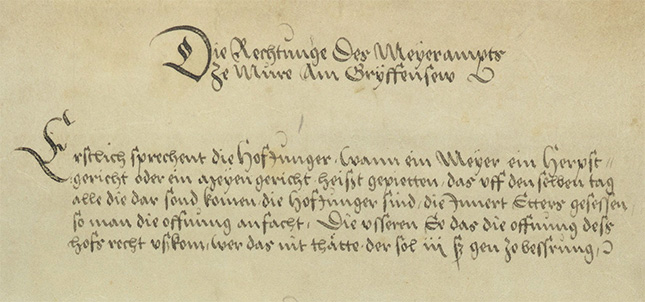 Die Rechtunge Des Meyerampts
Ze Mure Am Gryffensew
Erstlich sprechent die Hofjunger, wann ein Meyer ein Herpst-
gericht oder ein Meyengericht heisst gepietten, das uff den selben tag
alle die dar sond komen, die Hofjunger sind, die Jnnert Etters gesessen,
so man die offnung anfacht, Die usseren Ee das die offnung dess
hofs recht uskom, wer das nit thätte, der sol iij ß gen ze bessrung,